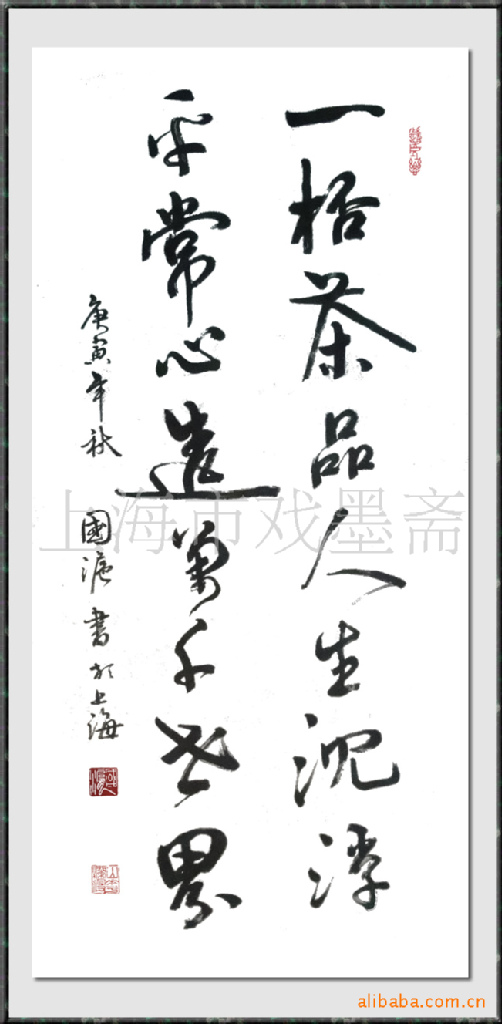 一桮茶品人生沉浮
平常心造萬千世界
庚寅年秋 國 書於上海
上海市戏墨斋
alibaba.com.cn